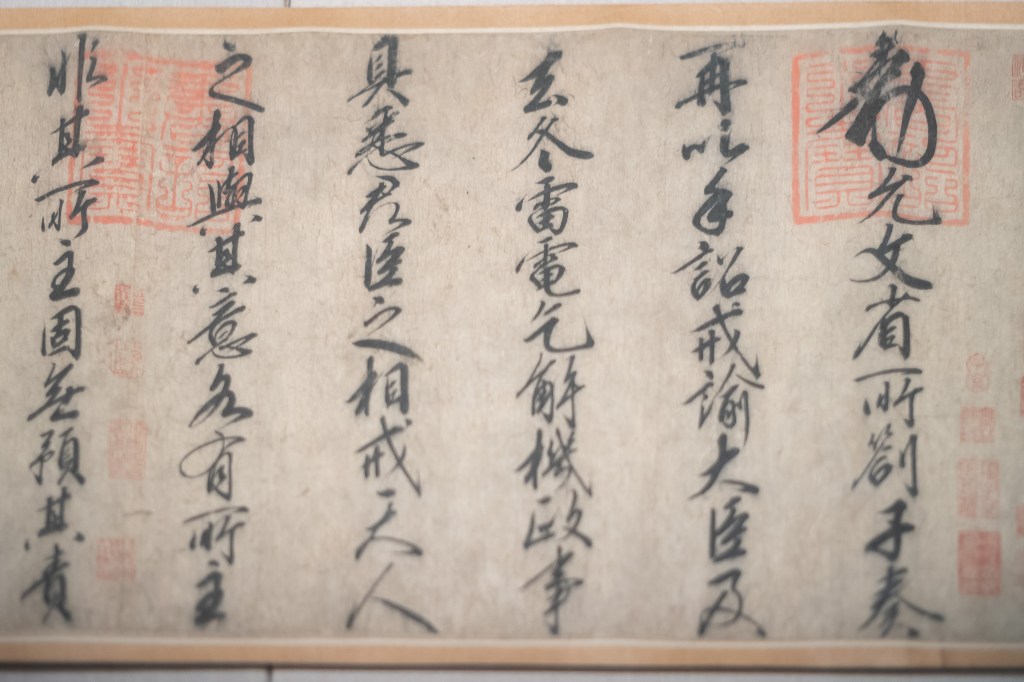 敕允文省所劄子奏
再以手詔戒諭大臣及
去冬雷電乞解機政事
具悉君臣之相戒天人
之相與其意各有所主
非其所主固無預其責